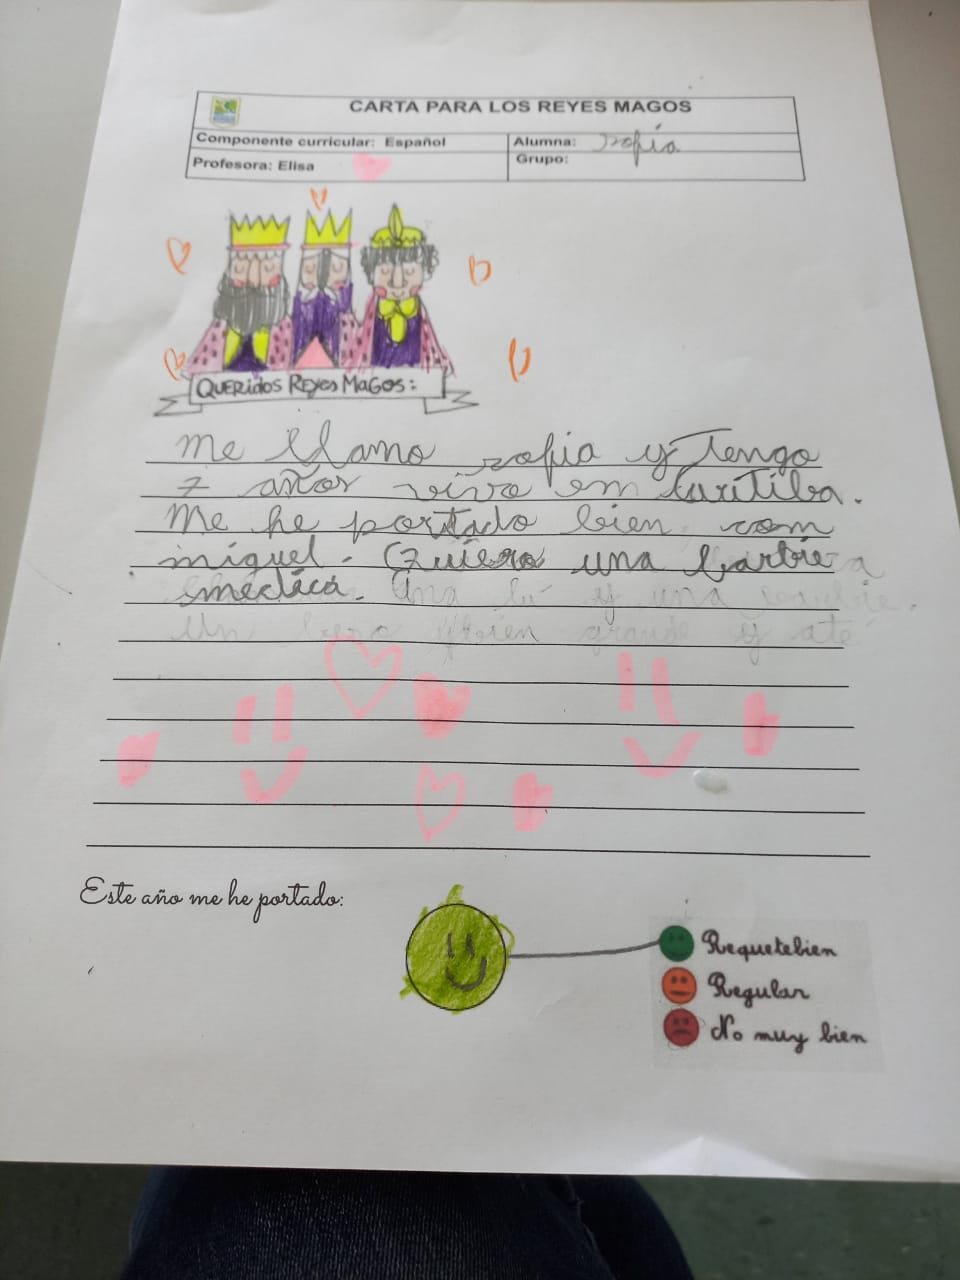 CARTA PARA LOS REYES MAGOS
Componente curricular: Español
Alumna: sofia
Profesora: Elisa
Grupo:
QUERIDOS REYES MAGOS:
me llamo sofia y Tengo
7 años vivo em Curitiba.
Me he portado bien com
miguel. Quiero una barbie
medica. una y una
Un beso bien grande y até
Este año me he portado:
Requetebien
Regular
No muy bien